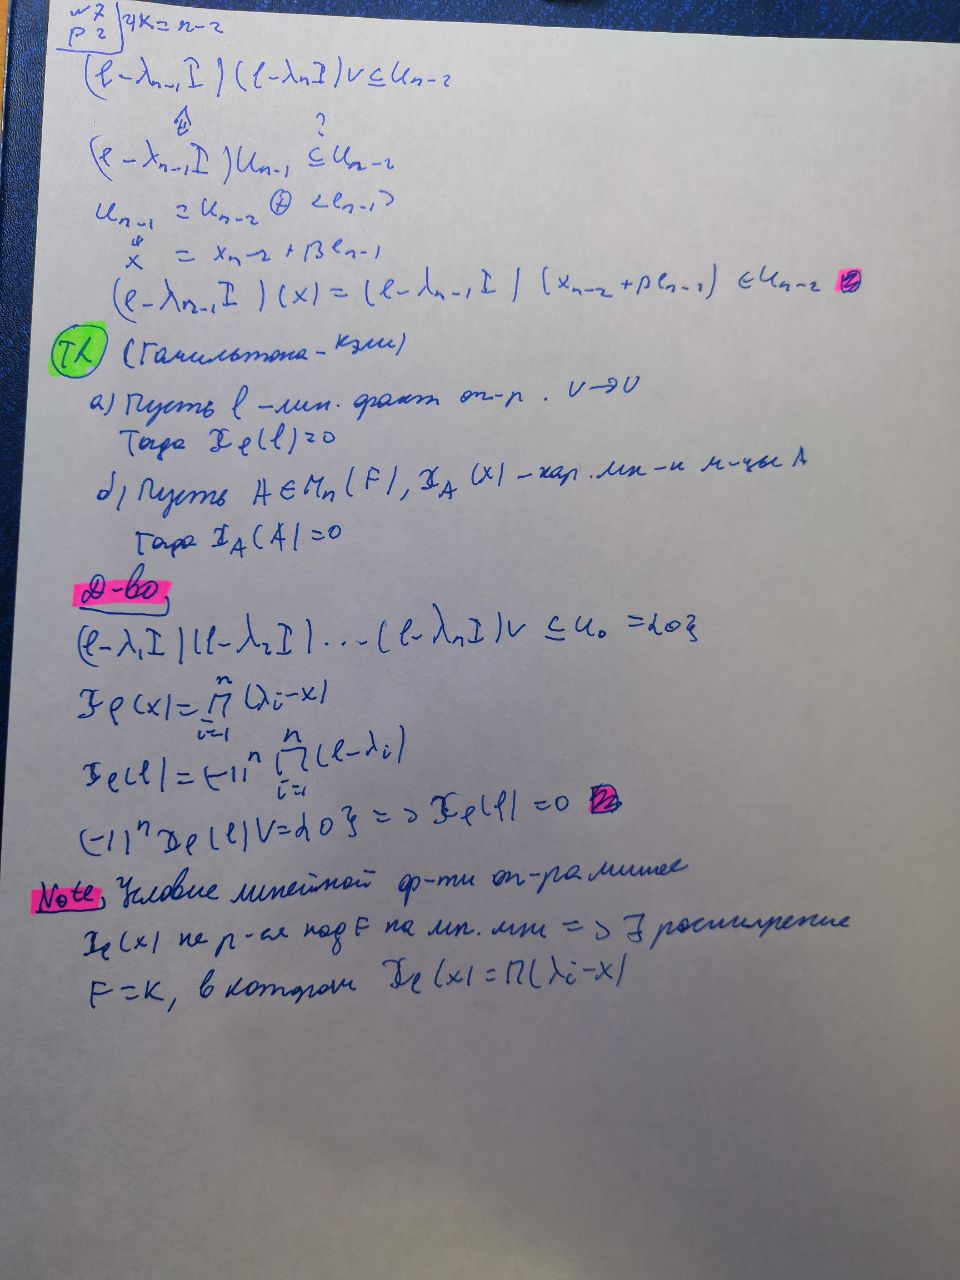 w7
p 2
4K = n-2
(φ-λₙ₋₁I)(φ-λₙI)V ⊆ Uₙ₋₂
⇕ ?
(φ-λₙ₋₁I)Uₙ₋₁ ⊆ Uₙ₋₂
Uₙ₋₁ = Uₙ₋₂ ⊕ <eₙ₋₁>
x = xₙ₋₂ + βeₙ₋₁
(φ-λₙ₋₁I)(x) = (φ-λₙ₋₁I)(xₙ₋₂+βeₙ₋₁) ∈ Uₙ₋₂
Th (Гамильтона-Кэли)
а) Пусть φ - лин. факт оп-р. V→V
Тогда χφ(φ)=0
б) Пусть A ∈ Mₙ(F), χ_A(x) - хар. мн-н м-цы A
Тогда χ_A(A)=0
Д-во
(φ-λ₁I)(φ-λ₂I)...(φ-λₙI)V ⊆ U₀ = {0}
χφ(x) = ∏ⁿᵢ₌₁(λᵢ-x)
χφ(φ) = (-1)ⁿ ∏ⁿᵢ₌₁(φ-λᵢ)
(-1)ⁿ χφ(φ)V={0} => χφ(φ)=0
Note, Условие линейной ф-ти оп-ра
χφ(x) не р-ся над F на лин. мн => ∃ расширение
F=K, в котором χφ(x)=∏(λᵢ-x)